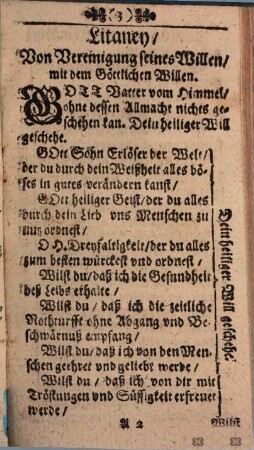 (3)
Litaney/
Von Vereinigung seines Willen/
mit dem Göttlichen Willen.
GOTT Vatter vom Himmel/
ohne dessen Allmacht nichts ge-
schehen kan. Dein heiliger Will
geschehe.
GOtt Sohn Erlöser der Welt/
der du durch dein Weißheit alles bö-
ses in gutes verändern kanst/
GOtt heiliger Geist/ der du alles
durch dein Lieb vns Menschen zu
nutz ordnest/
O H. Dreyfaltigkeit/ der du alles
zum besten würckest vnd ordnest/
Wilst du/ daß ich die Gesundheit
deß Leibs erhalte/
Wilst du/ daß ich die zeitliche
Nothturfft ohne Abgang vnd Be-
schwärnuß empfang/
Wilst du/ daß ich von den Men-
schen geehret vnd geliebt werde/
Wilst du/ daß ich von dir mit
Tröstungen vnd Süssigkeit erfreuet
werde/
Dein heiliger Will geschehe.
A 2
Wilst